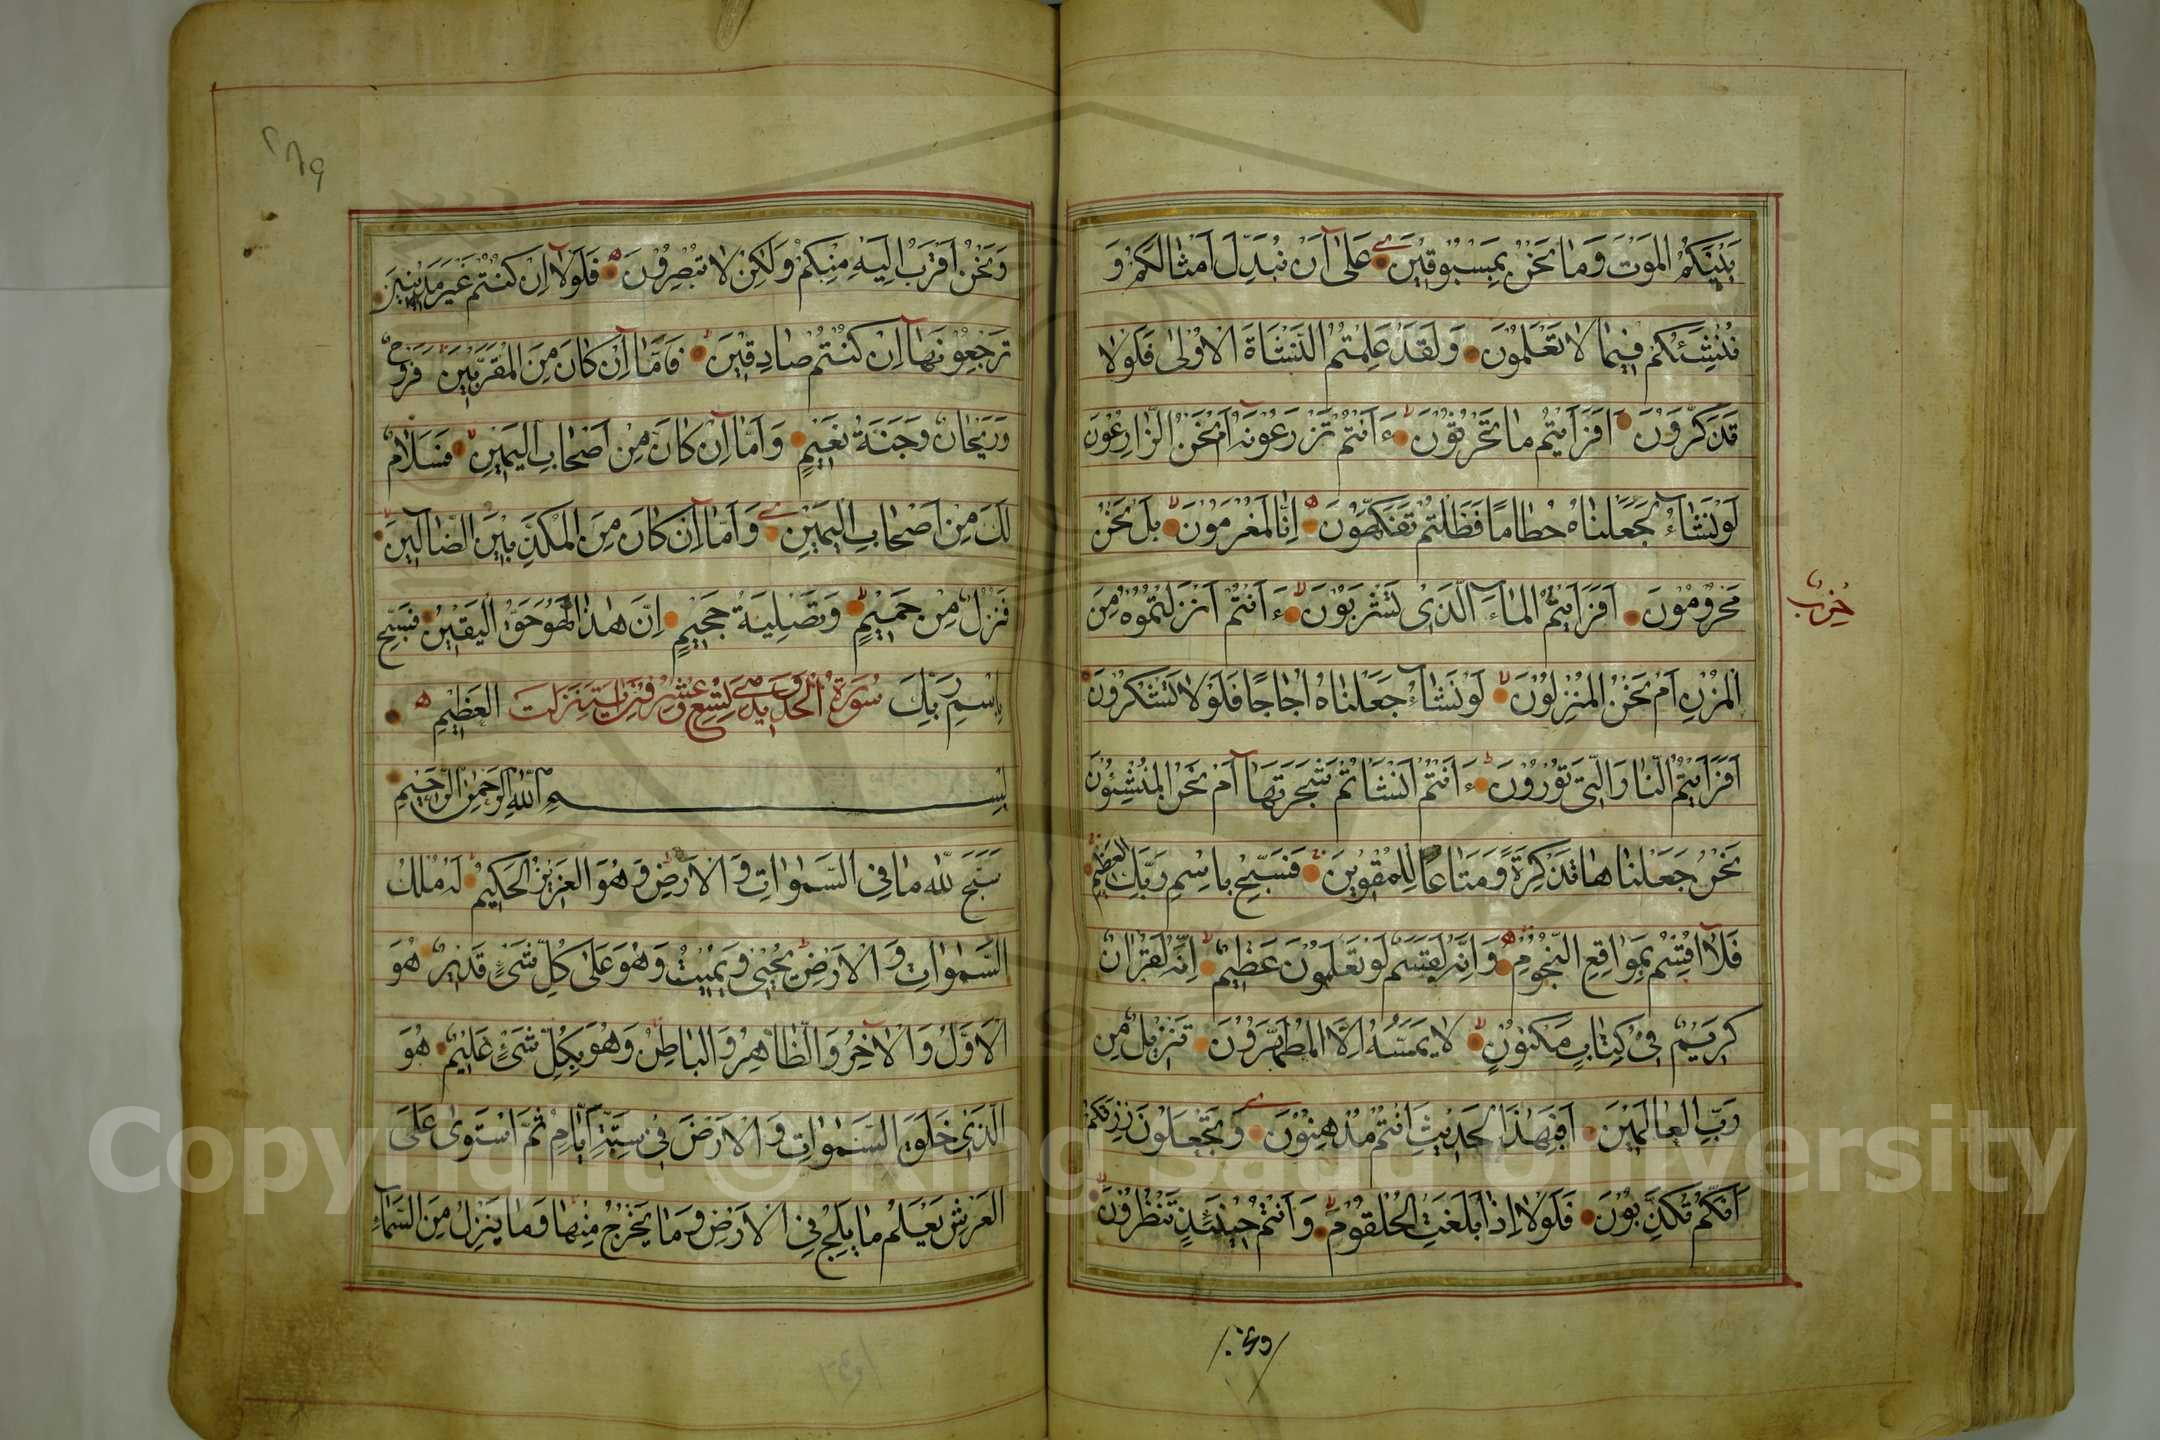 بَيْنَكُمُ الْمَوْتَ وَمَا نَحْنُ بِمَسْبُوقِينَ عَلٰى اَنْ نُبَدِّلَ اَمْثَالَكُمْ وَ
نُنْشِئَكُمْ فِيمَا لَا تَعْلَمُونَ وَلَقَدْ عَلِمْتُمُ النَّشْاَةَ الْاُولٰى فَلَوْلَا
تَذَكَّرُونَ اَفَرَاَيْتُمْ مَا تَحْرُثُونَ ءَاَنْتُمْ تَزْرَعُونَهُ اَمْ نَحْنُ الزَّارِعُونَ
لَوْ نَشَاءُ لَجَعَلْنَاهُ حُطَامًا فَظَلْتُمْ تَفَكَّهُونَ اِنَّا لَمُغْرَمُونَ بَلْ نَحْنُ
مَحْرُومُونَ اَفَرَاَيْتُمُ الْمَاءَ الَّذِى تَشْرَبُونَ ءَاَنْتُمْ اَنْزَلْتُمُوهُ مِنَ
حِزْب
الْمُزْنِ اَمْ نَحْنُ الْمُنْزِلُونَ لَوْ نَشَاءُ جَعَلْنَاهُ اُجَاجًا فَلَوْلَا تَشْكُرُونَ
اَفَرَاَيْتُمُ النَّارَ الَّتِى تُورُونَ ءَاَنْتُمْ اَنْشَاْتُمْ شَجَرَتَهَا اَمْ نَحْنُ الْمُنْشِئُونَ
نَحْنُ جَعَلْنَاهَا تَذْكِرَةً وَمَتَاعًا لِلْمُقْوِينَ فَسَبِّحْ بِاسْمِ رَبِّكَ الْعَظِيمِ
فَلَا اُقْسِمُ بِمَوَاقِعِ النُّجُومِ وَاِنَّهُ لَقَسَمٌ لَوْ تَعْلَمُونَ عَظِيمٌ اِنَّهُ لَقُرْاٰنٌ
كَرِيمٌ فِى كِتَابٍ مَكْنُونٍ لَا يَمَسُّهُ اِلَّا الْمُطَهَّرُونَ تَنْزِيلٌ مِنْ
رَبِّ الْعَالَمِينَ اَفَبِهٰذَا الْحَدِيثِ اَنْتُمْ مُدْهِنُونَ وَتَجْعَلُونَ رِزْقَكُمْ
اَنَّكُمْ تُكَذِّبُونَ فَلَوْلَا اِذَا بَلَغَتِ الْحُلْقُومَ وَاَنْتُمْ حِينَئِذٍ تَنْظُرُونَ
وَنَحْنُ اَقْرَبُ اِلَيْهِ مِنْكُمْ وَلٰكِنْ لَا تُبْصِرُونَ فَلَوْلَا اِنْ كُنْتُمْ غَيْرَ مَدِينِينَ
تَرْجِعُونَهَا اِنْ كُنْتُمْ صَادِقِينَ فَاَمَّا اِنْ كَانَ مِنَ الْمُقَرَّبِينَ فَرَوْحٌ
وَرَيْحَانٌ وَجَنَّةُ نَعِيمٍ وَاَمَّا اِنْ كَانَ مِنْ اَصْحَابِ الْيَمِينِ فَسَلَامٌ
لَكَ مِنْ اَصْحَابِ الْيَمِينِ وَاَمَّا اِنْ كَانَ مِنَ الْمُكَذِّبِينَ الضَّالِّينَ
فَنُزُلٌ مِنْ حَمِيمٍ وَتَصْلِيَةُ جَحِيمٍ اِنَّ هٰذَا لَهُوَ حَقُّ الْيَقِينِ فَسَبِّحْ
بِاسْمِ رَبِّكَ الْعَظِيمِ
سُورَةُ الْحَدِيدِ
بِسْمِ اللّٰهِ الرَّحْمٰنِ الرَّحِيمِ
سَبَّحَ لِلّٰهِ مَا فِى السَّمٰوَاتِ وَالْاَرْضِ وَهُوَ الْعَزِيزُ الْحَكِيمُ لَهُ مُلْكُ
السَّمٰوَاتِ وَالْاَرْضِ يُحْيِى وَيُمِيتُ وَهُوَ عَلٰى كُلِّ شَىْءٍ قَدِيرٌ هُوَ
الْاَوَّلُ وَالْاٰخِرُ وَالظَّاهِرُ وَالْبَاطِنُ وَهُوَ بِكُلِّ شَىْءٍ عَلِيمٌ هُوَ
الَّذِى خَلَقَ السَّمٰوَاتِ وَالْاَرْضَ فِى سِتَّةِ اَيَّامٍ ثُمَّ اسْتَوٰى عَلَى
الْعَرْشِ يَعْلَمُ مَا يَلِجُ فِى الْاَرْضِ وَمَا يَخْرُجُ مِنْهَا وَمَا يَنْزِلُ مِنَ السَّمَاءِ
Copyright © King Saud University